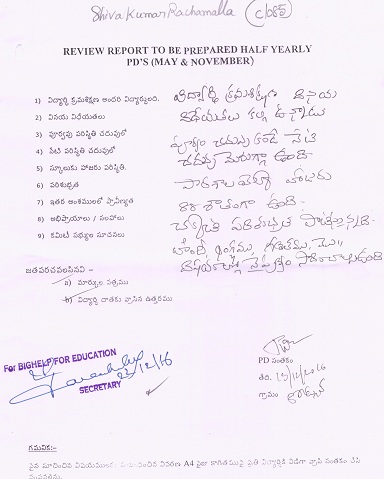 Shiva Kumar Rachamalla C/085
REVIEW REPORT TO BE PREPARED HALF YEARLY
PD'S (MAY & NOVEMBER)
1) విద్యార్థి క్రమశిక్షణ అందరి విద్యార్థులది.
2) వినయ విధేయతలు
3) పూర్వపు పరిస్థితి చదువులో
4) నేటి పరిస్థితి చదువులో
5) స్కూలుకు హాజరు పరిస్థితి.
6) పరిశుభ్రత
7) ఇతర అంశములలో ప్రావీణ్యత
8) అభిప్రాయాలు / సలహాలు
9) కమిటీ సభ్యుల సూచనలు
విద్యార్థి క్రమశిక్షణ వినయ
విధేయతలు కల్గి ఉన్నాడు
పూర్వం చదువు కంటే నేటి
చదువు మెరుగ్గా ఉంది.
పాఠశాల హాజరు
శాతంగా ఉంది.
జతపరచవలసినవి :-
a) మార్కుల పత్రము
b) విద్యార్థి దాతకు వ్రాసిన ఉత్తరము
For BIGHELP FOR EDUCATION
23/12/16
SECRETARY
PD సంతకం
తేది. 13/12/2016
గ్రామం
గమనిక:-
పైన సూచించిన విషయములకు A4 సైజు కాగితముపై ప్రతి విద్యార్థికి విడిగా వ్రాసి సంతకం చేసి
పంపవలెను.